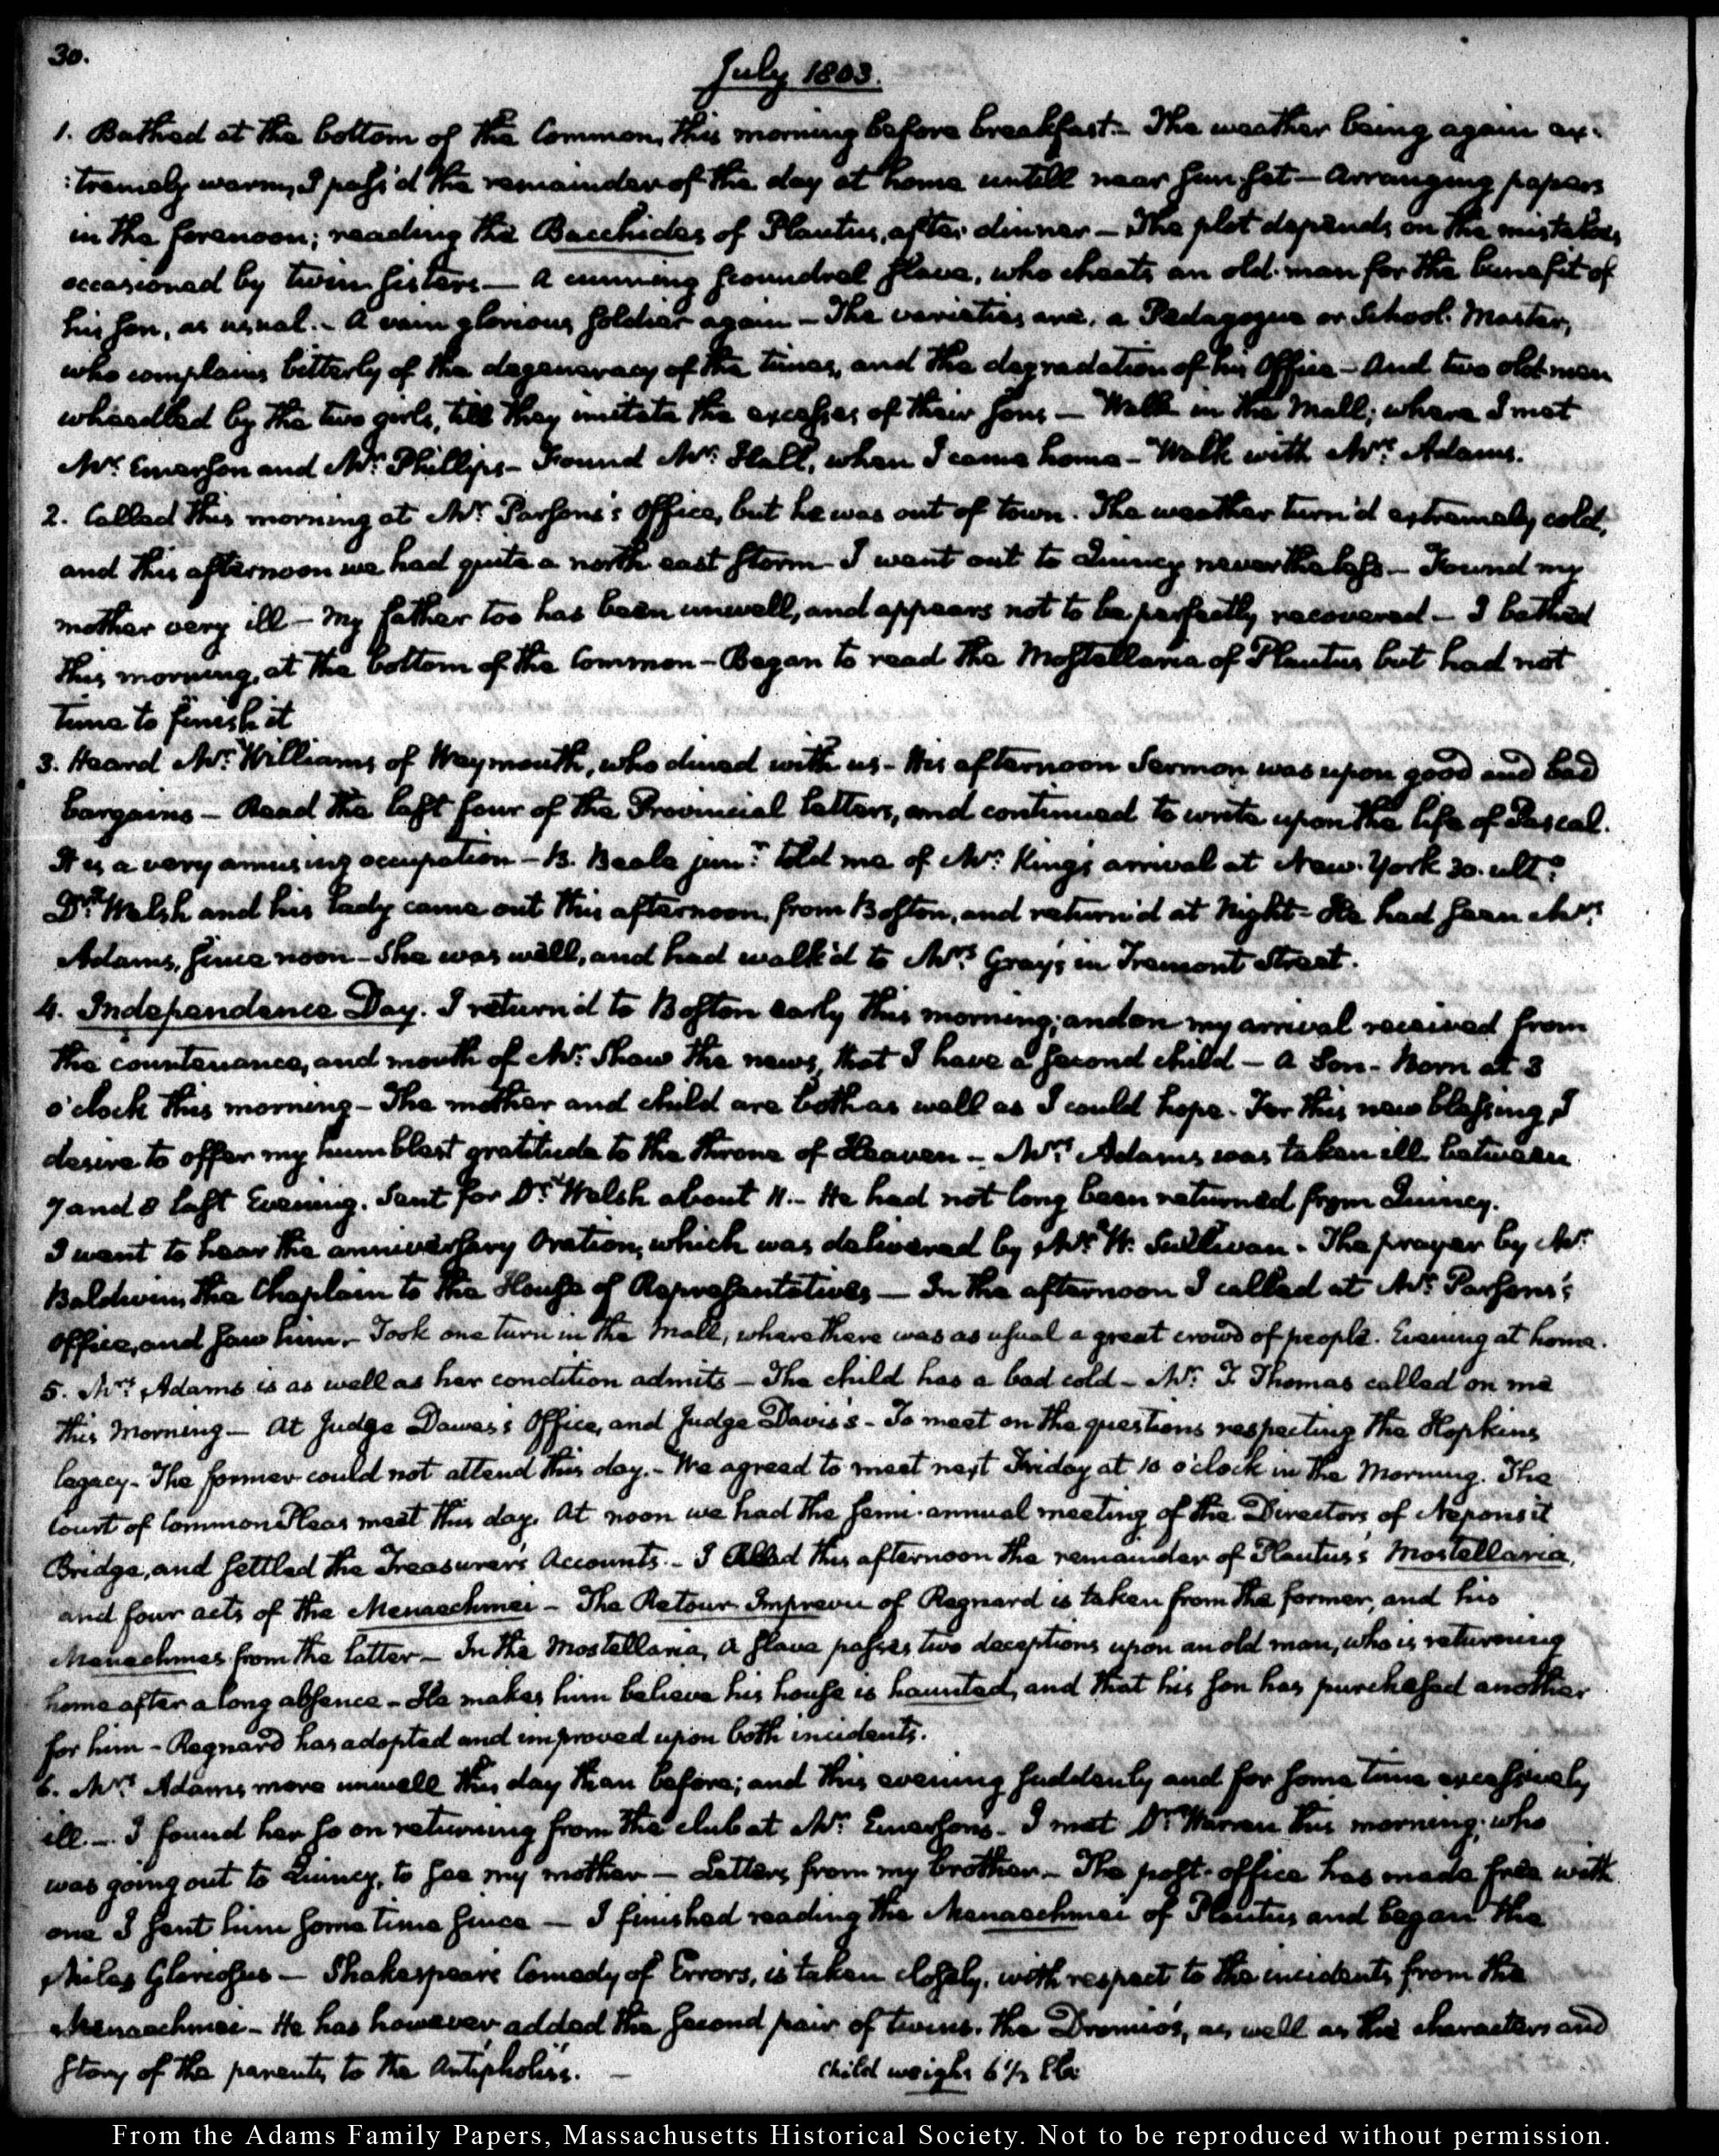 30.
July 1803.
1. Bathed at the bottom of the Common, this morning before breakfast. The weather being again ex-
:tremely warm, I pass'd the remainder of the day at home untill near sun-set — Arranging papers
in the forenoon; reading the Bacchides of Plautus, after dinner — The plot depends on the mistakes
occasioned by twin sisters — A cunning scoundrel slave, who cheats an old man for the benefit of
his son, as usual. — A vain glorious soldier again — The varieties are, a Pedagogue or School-Master,
who complains bitterly of the degeneracy of the times, and the degradation of his Office — And two old men
wheedled by the two girls, till they imitate the excesses of their sons — Walk in the Mall; where I met
Mr. Emerson and Mr. Phillips — Found Mr. Hall, when I came home — Walk with Mrs. Adams.
2. Called this morning at Mr. Parsons's Office, but he was out of town. The weather turn'd extremely cold,
and this afternoon we had quite a north east storm — I went out to Quincy nevertheless — Found my
mother very ill — My father too has been unwell, and appears not to be perfectly recovered — I bathed
this morning, at the bottom of the Common — Began to read the Mostellaria of Plautus, but had not
time to finish it
3. Heard Mr. Williams of Weymouth, who dined with us — His afternoon Sermon was upon good and bad
bargains — Read the last four of the Provincial Letters, and continued to write upon the life of Pascal.
It is a very amusing occupation — B. Beale junr. told me of Mr. King's arrival at New-York 30. ulto.
Dr. Welsh and his Lady came out this afternoon, from Boston, and return'd at Night — He had seen Mrs.
Adams, since noon — She was well, and had walk'd to Mrs. Gray's in Tremont Street.
4. Independence Day. I return'd to Boston early this morning; and on my arrival received from
the countenance, and mouth of Mr. Shaw the news, that I have a second child — A Son — Born at 3
o'clock this morning — The mother and child are both as well as I could hope. For this new blessing, I
desire to offer my humblest gratitude to the throne of Heaven — Mrs. Adams was taken ill between
7 and 8 last Evening. Sent for Dr. Welsh about 11. — He had not long been returned from Quincy.
I went to hear the anniversary Oration, which was delivered by Mr. W. Sullivan. The prayer by Mr.
Baldwin, the Chaplain to the House of Representatives — In the afternoon I called at Mr. Parsons's
Office, and saw him. Took one turn in the Mall, where there was as usual a great crowd of people. Evening at home.
5. Mrs. Adams is as well as her condition admits — The child has a bad cold — Mr. I. Thomas called on me
this Morning — At Judge Dawes's Office, and Judge Davis's — To meet on the questions respecting the Hopkins
legacy — The former could not attend this day. — We agreed to meet next Friday at 10 o'clock in the Morning. The
Court of Common Pleas meet this day. At noon we had the semi-annual meeting of the Directors of Neponsit
Bridge, and settled the Treasurer's Accounts. — I Read this afternoon the remainder of Plautus's Mostellaria,
and four acts of the Menaechmei — The Retour Imprevu of Regnard is taken from the former, and his
Menechmes from the latter — In the Mostellaria, a slave passes two deceptions upon an old man, who is returning
home after a long absence — He makes him believe his house is haunted, and that his son has purchased another
for him — Regnard has adopted and improved upon both incidents.
6. Mrs. Adams more unwell this day than before; and this evening suddenly and for some time excessively
ill — I found her so on returning from the club at Mr. Emerson's — I met Dr. Warren this morning; who
was going out to Quincy, to see my mother — Letters from my brother — The post-office has made free with
one I sent him some time since — I finished reading the Menaechmei of Plautus and began the
Miles Gloriosus — Shakespeare's Comedy of Errors, is taken closely, with respect to the incidents from the
Menaechmei — He has however added the second pair of twins, the Dromio's, as well as the characters and
story of the parents to the Antipholis's. — Child weighs 6 1/2 lb:
From the Adams Family Papers, Massachusetts Historical Society. Not to be reproduced without permission.